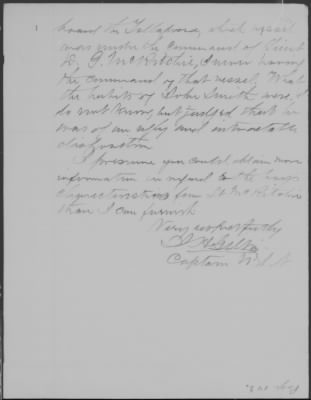 board the Tallapoosa, which vessel
was under the command of Lieut
D. G. McRitchie, I never having
the command of that vessel. What
the habits of John Smith were, I
do not know, but judged that he
was of an ugly and intractable
disposition
I presume you could obtain more
information in regard to the
from Lt McRitchie
than I can furnish
Very respectfully
Captain U.S.N